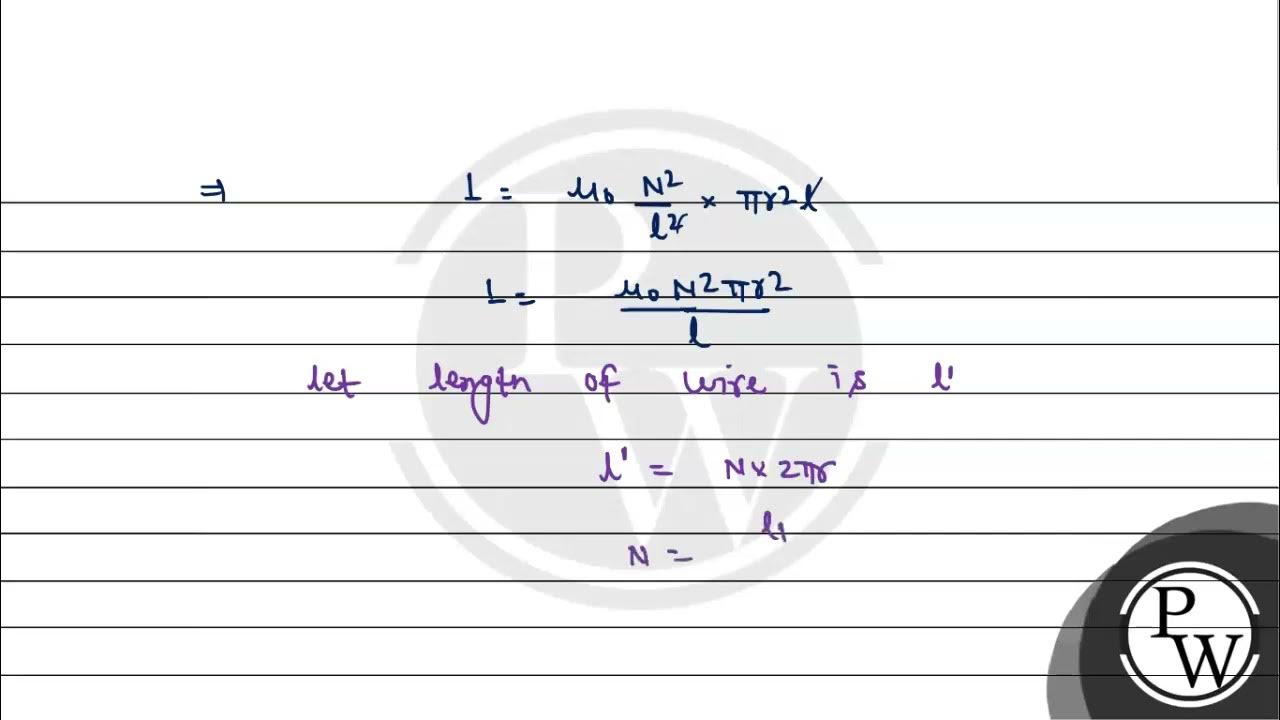 ⇒ L = μ₀ N²/l² × πr²l
L = μ₀N²πr²/l
let length of wire is l'
l' = N × 2πr
l'
N =
P
W
P
W